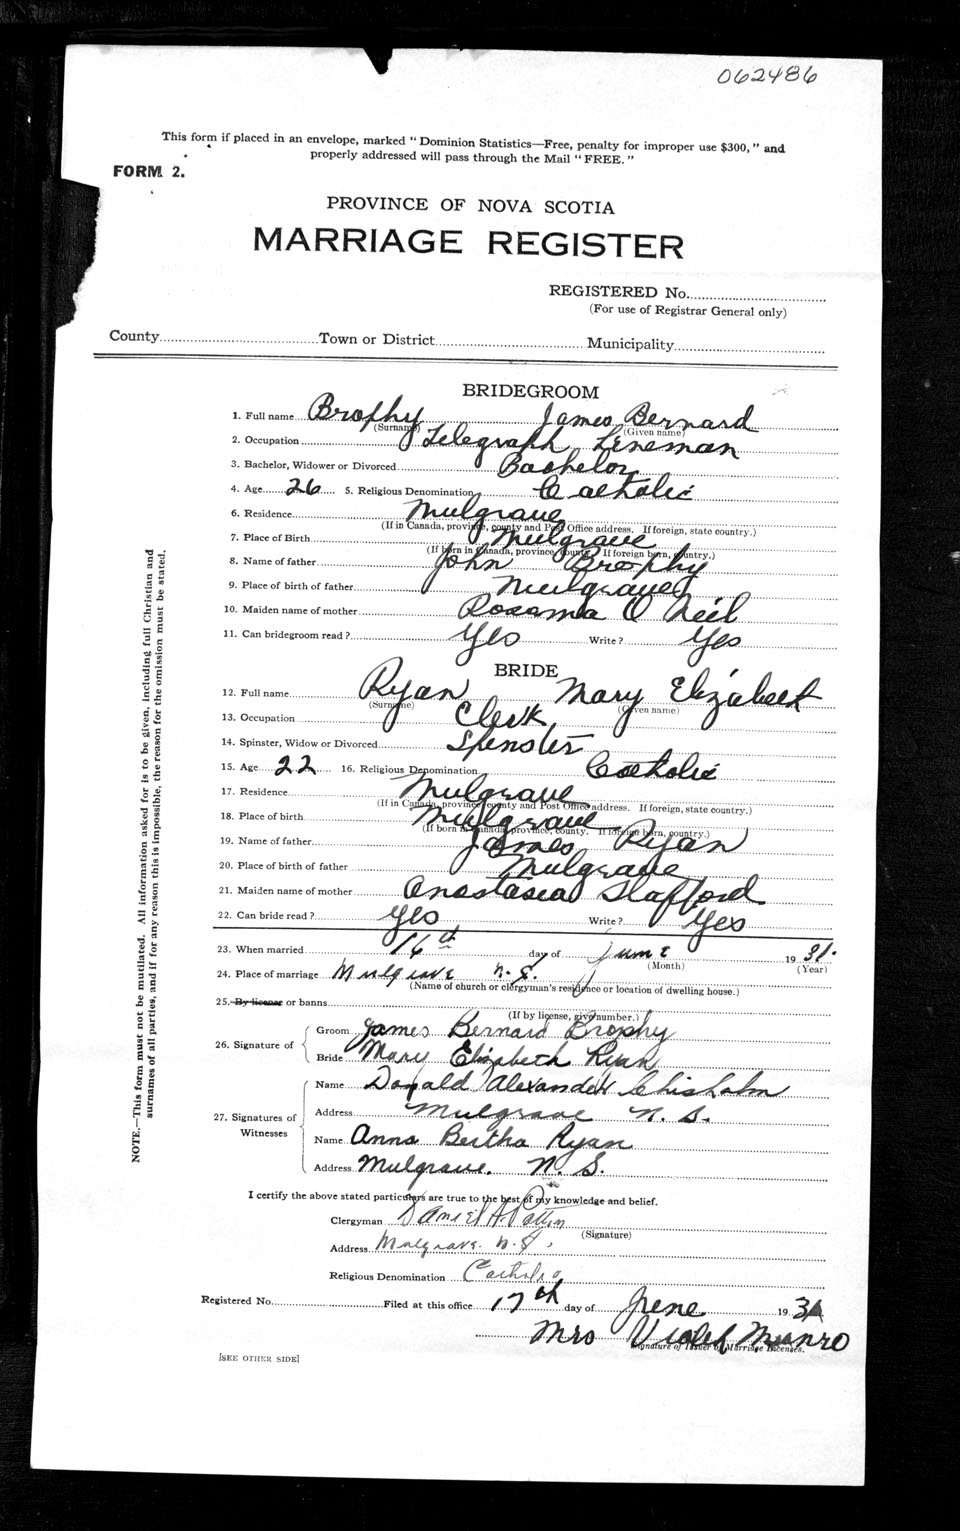 062486
This form if placed in an envelope, marked "Dominion Statistics—Free, penalty for improper use $300," and
properly addressed will pass through the Mail "FREE."
FORM 2.
PROVINCE OF NOVA SCOTIA
MARRIAGE REGISTER
REGISTERED No.
(For use of Registrar General only)
County Town or District Municipality
BRIDEGROOM
1. Full name Brophy James Bernard
(Surname) (Given name)
2. Occupation Telegraph Lineman
3. Bachelor, Widower or Divorced Bachelor
4. Age 26 5. Religious Denomination Catholic
6. Residence Mulgrave
(If in Canada, province, county and Post Office address. If foreign, state country.)
7. Place of Birth Mulgrave
(If born in Canada, province, county. If foreign born, country.)
8. Name of father John Brophy
9. Place of birth of father Mulgrave
10. Maiden name of mother Rosanna O Neil
11. Can bridegroom read? Yes Write? Yes
BRIDE
12. Full name Ryan Mary Elizabeth
(Surname) (Given name)
13. Occupation Clerk
14. Spinster, Widow or Divorced Spenster
15. Age 22 16. Religious Denomination Catholic
17. Residence Mulgrave
(If in Canada, province, county and Post Office address. If foreign, state country.)
18. Place of birth Mulgrave
(If born in Canada, province, county. If foreign born, country.)
19. Name of father James Ryan
20. Place of birth of father Mulgrave
21. Maiden name of mother Anastasia Stafford
22. Can bride read? Yes Write? Yes
23. When married 16th day of June 1931.
(Month) (Year)
24. Place of marriage Mulgrave N.S.
(Name of church or clergyman's residence or location of dwelling house.)
25. By license or banns
(If by license, give number.)
26. Signature of Groom James Bernard Brophy
Bride Mary Elizabeth Ryan
27. Signatures of Witnesses
Name Donald Alexander Chisholm
Address Mulgrave N. S.
Name Anna Bertha Ryan
Address Mulgrave. N. S.
I certify the above stated particulars are true to the best of my knowledge and belief.
Clergyman Daniel A.
(Signature)
Address Mulgrave. N. S.
Religious Denomination Catholic
Registered No. Filed at this office 17th day of June 1931
Mrs Violet Munro
Signature of Issuer of Marriage Licenses.
[SEE OTHER SIDE]
NOTE.—This form must not be mutilated. All information asked for is to be given, including full Christian and
surnames of all parties, and if for any reason this is impossible, the reason for the omission must be stated.